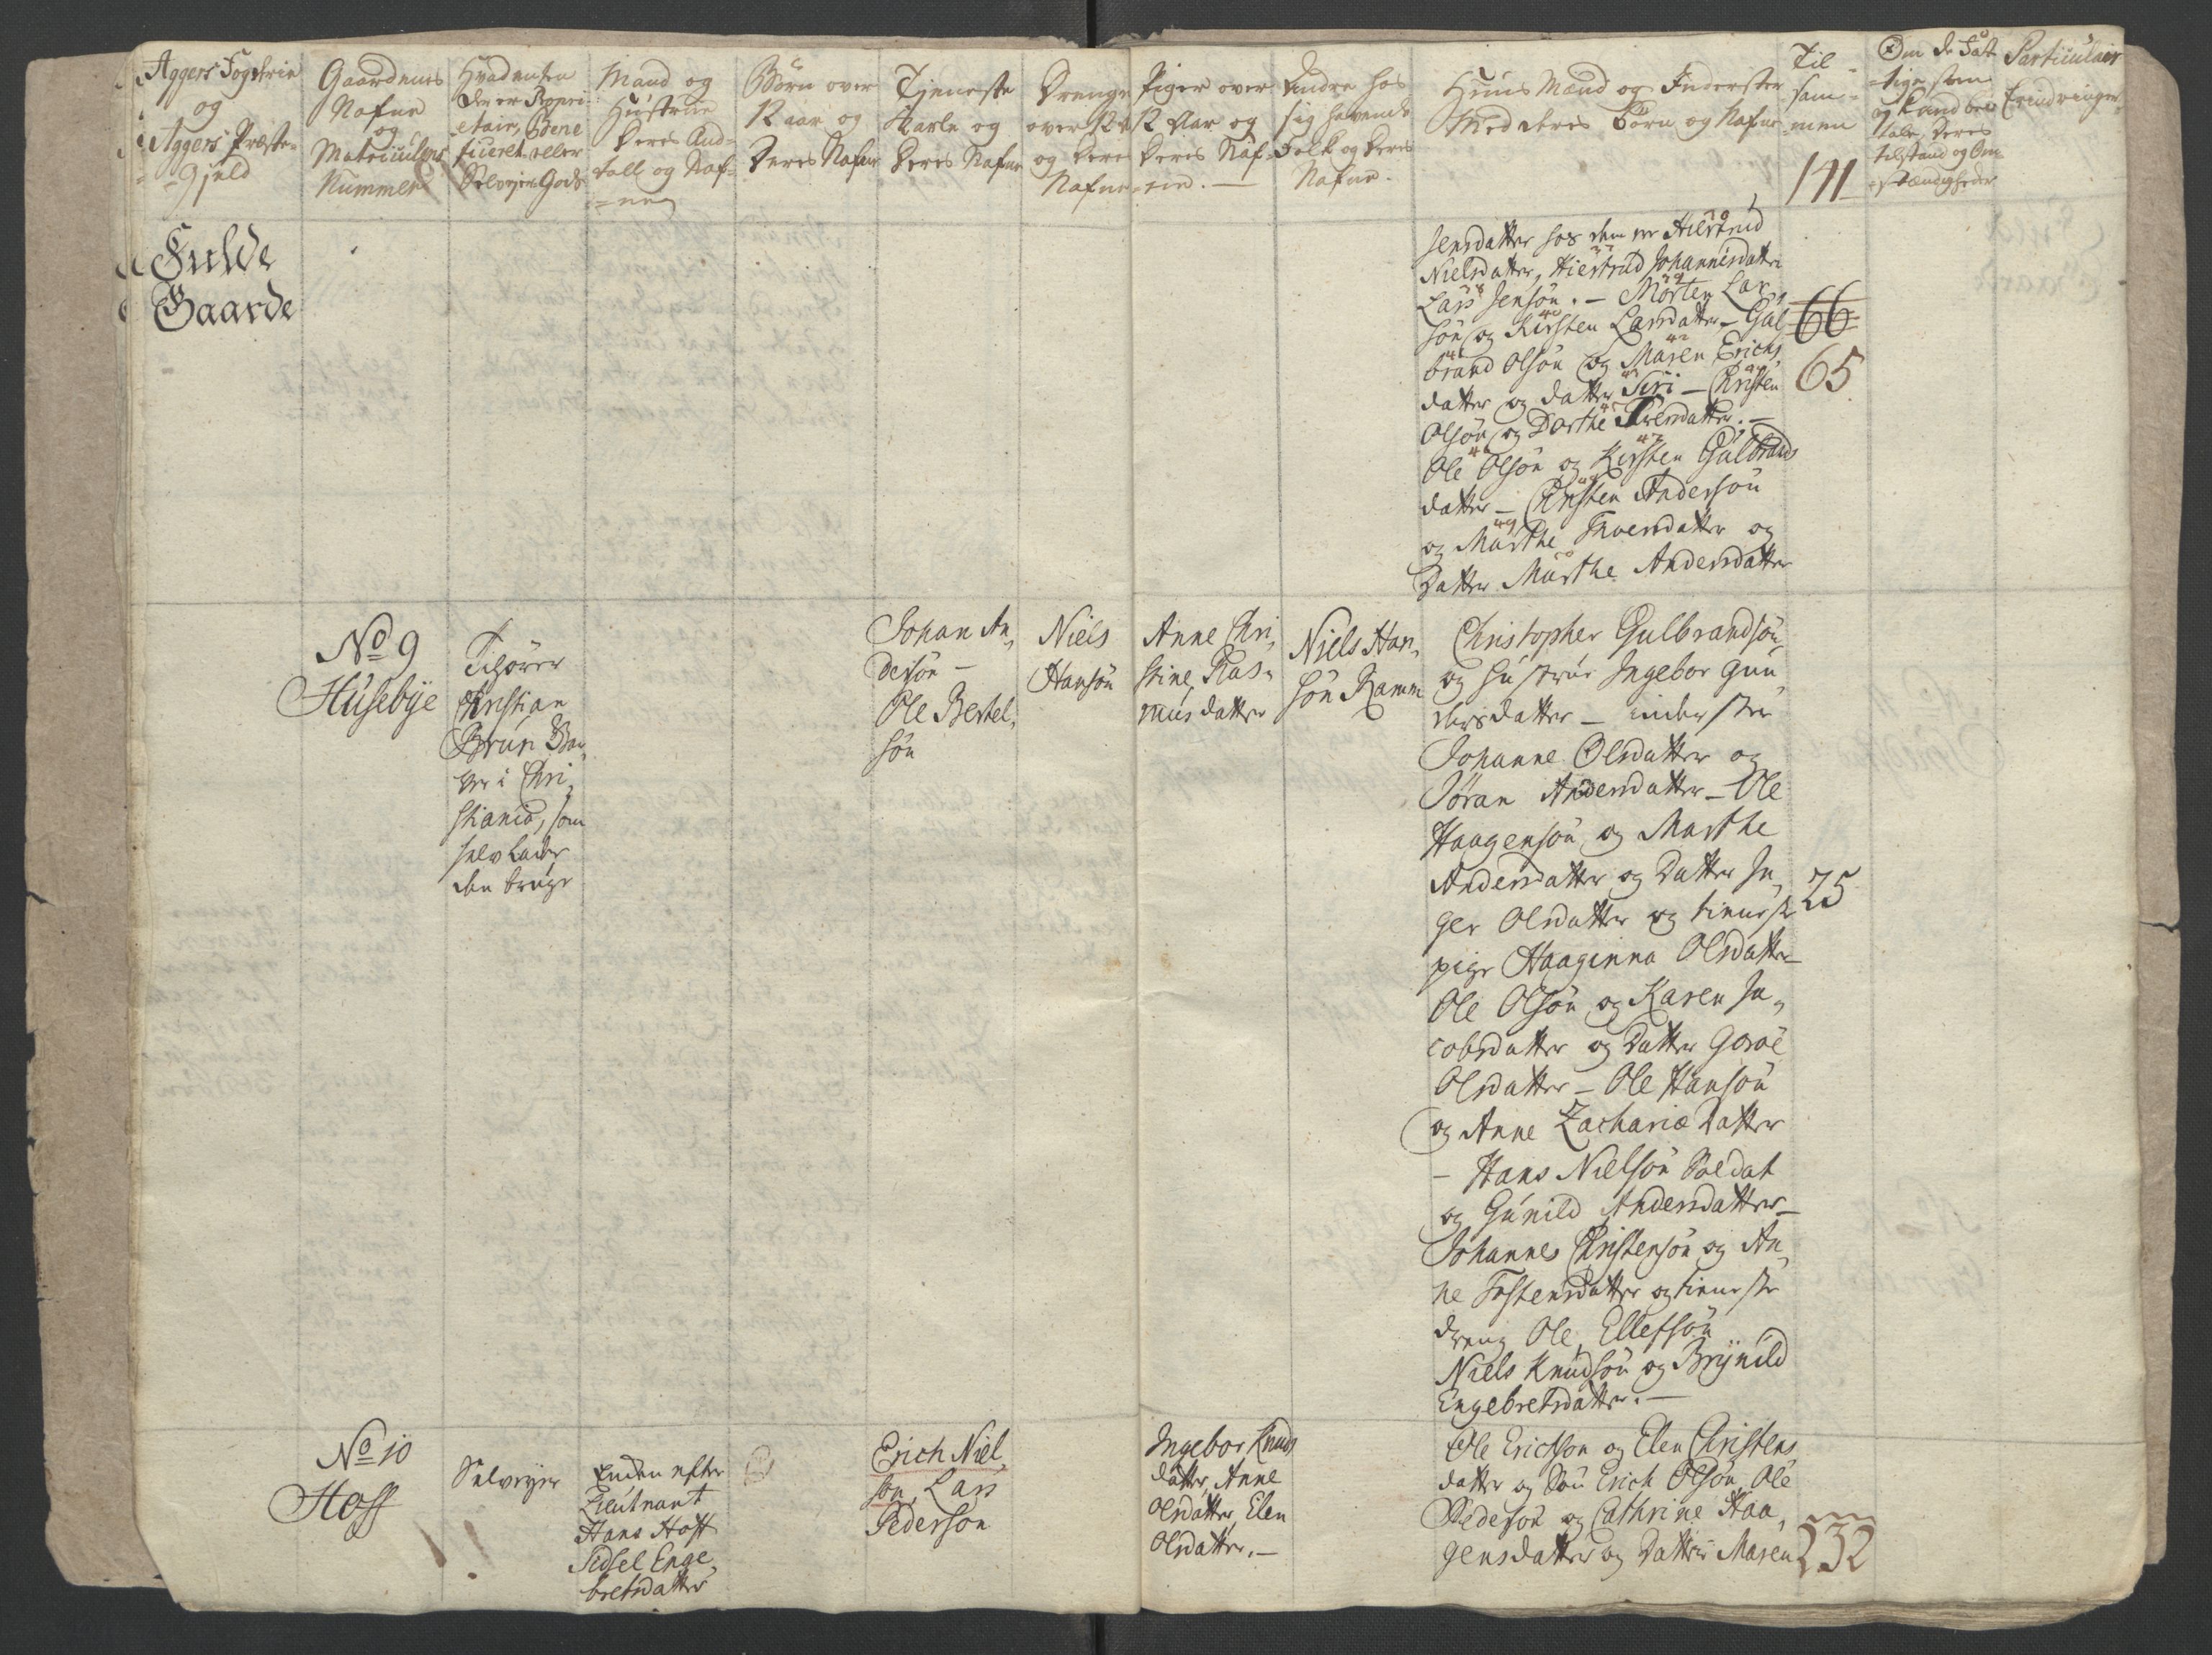 Aggers Fogderie
og
Aggers Præste-
Gjeld
Gaardenes
Nafne
og
Matriculens
Nummer
Hvad enten
den er Propri-
etair, Bene-
ficeret eller
Selveyer Gods
Mand og
Hustrue
Deres An-
tall og Naf-
ne
Børn over
12 aar og
Deres Nafne
Tjeneste
Karle og
Deres Nafne
Drenge
over 12
og Deres
Nafne
Piger over
12 Aar og
Deres Naf-
ne. —
Andre hos
sig havende
Folk og Deres
Nafne.
Huus Mænd og Inderster
Med deres Børn og Nafne
Til
sam-
men
171
Om de Fat-
tige
Deres
tilstand og Om-
stændigheder
Particulair
Erindringer
Fulde
Gaarde
Jensdatter hos dem er
Nielsdatter, Johannesdatter
Lars Jensøn. — Morten Lar,
søn og Kirsten Larsdatter — Gul,
brand Olsøn og Maren Erichs,
datter og datter Siri — Christen
Olsøn og Dorthe
Ole Olsøn og Kirsten Gulbrands
datter — Christen Andersøn
og Marthe Thoersdatter og
Datter Marthe Andersdatter
66
65
No 9
Husebye
Tilhører
Christian
Brun
i Chri,
stiania, som
selv lader
den bruge
Johan An,
dersøn —
Ole Bertel,
søn
Niels
Hansøn
Anne Chri,
stine Ras,
musdatter
Niels Han,
søn Ramm
Christopher Gulbrandsøn
og Hustrue Ingebor Gun
dersdatter — inderster
Johanne Olsdatter og
Jøran Andersdatter — Ole
Haagensøn og Marthe
Andersdatter og Datter In,
ger Olsdatter og tieneste
pige Haaginna Olsdatter —
Ole Olsøn og Karen Ja,
cobsdatter og Datter Goroe
Olsdatter — Ole Hansøn
og Anne Zachariæ Datter
— Hans Nielsøn Soldat
og Gunild Andersdatter —
Johannes Christensøn og An,
ne Tostensdatter og tieneste
dreng Ole Ellefsøn
Niels Knudsøn og Brynild
Engebretsdatter. —
25
No 10
Hoff
Selveyer
Enken efter
Lieutnant
Hans Hoff
Sidsel Enge,
bretsdatter
Erich Niel,
søn, Lars
Pedersøn
Ingebor Knuds
datter, Anne
Olsdatter, Elen
Olsdatter. —
Ole Ericksøn og Elen Christens
datter og Søn Erich Olsøn, Ole
Pedersøn og Cathrine Haa,
gensdatter og Datter Maren
232